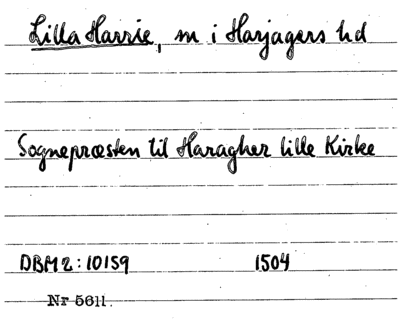 Lilla Harrie, sn i Harjagers hd
Sognepræsten til Haragher lille Kirke
DBM 2:10159 1504
Nr 5611.